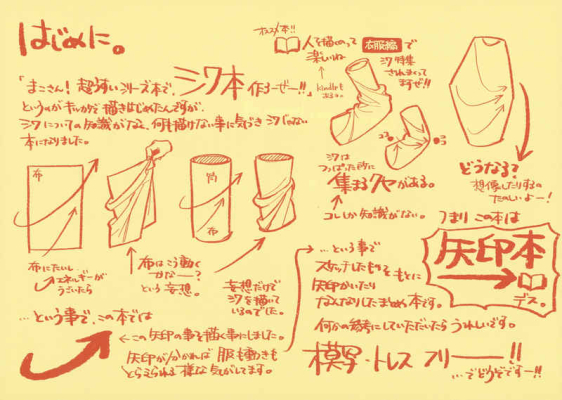 はじめに。
「まこさん!超うすいシリーズ本で、シワ本作るーぜー!!」
というのがキッカケで描きはじめたんですが、
シワについての知識がなく、何も描けない事に気づきシワじゃない
本になりました。
布
布にたいし
エネルギーが
うごいたら
布はこう動く
かなー?
という妄想。
筒
妄想だけで
シワを描いて
いるのでした。
オススメ本!!
人を描くのって
楽しいね
衣服編で
シワ特集
されまくって
ますぜ!!
kindleで
シワは
つっぱった所に
集まるクセがある。
ココ
コレしか知識がない。
どうなる?
想像したりするの
たのしいよー!
つまり この本は
矢印本
デス。
…という事で、この本では
←この矢印の事を描く事にしました。
矢印が分かれば 服も動きも
とらえられる様な気がしてます。
…という事で
スケッチしたものをもとに
矢印かいたり
なんなりしたまとめ本です。
何かの参考にしていただいたら うれしいです。
模写・トレス フリーー!!
…でどうぞですー!!